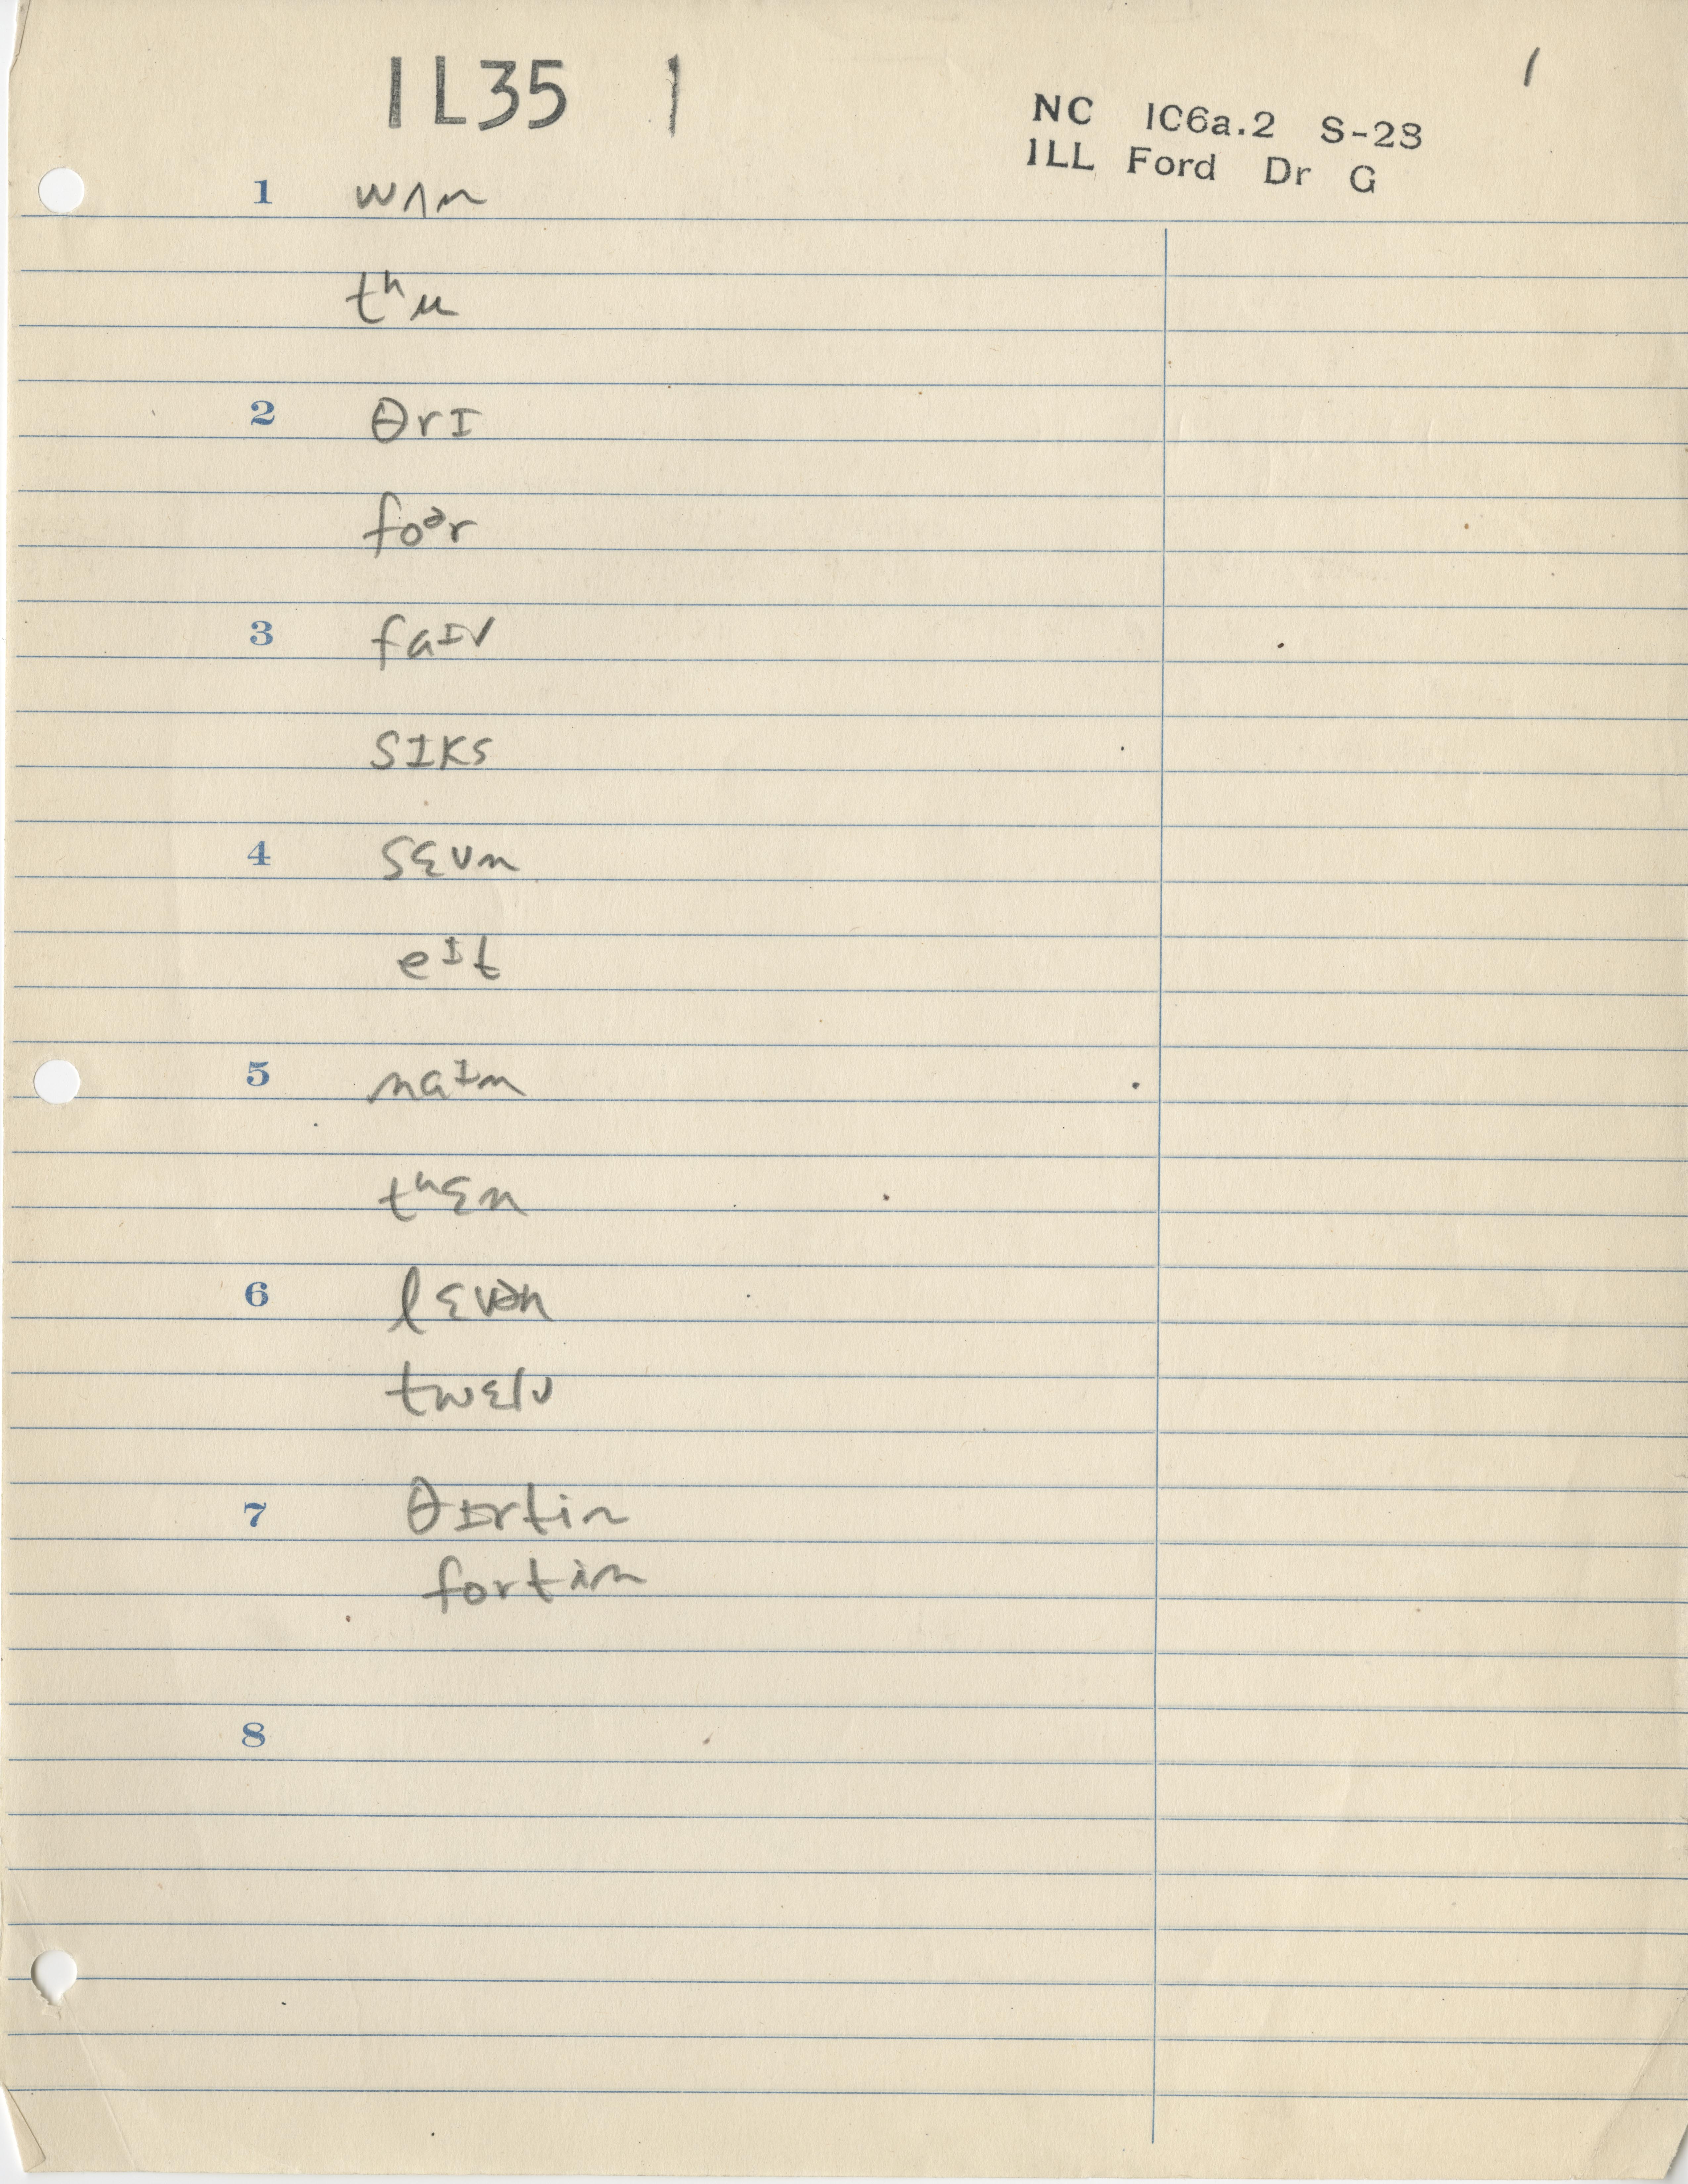 IL35 1
1
NC 1C6a.2 S-28
ILL Ford Dr G
1 wʌn
tʰu
2 θrɪ
foᵊr
3 faᶦv
sɪks
4 sɛvn
eᶦt
5 naᶦn
tʰɛn
6 lɛvən
twɛlv
7 θɪrtin
fortin
8